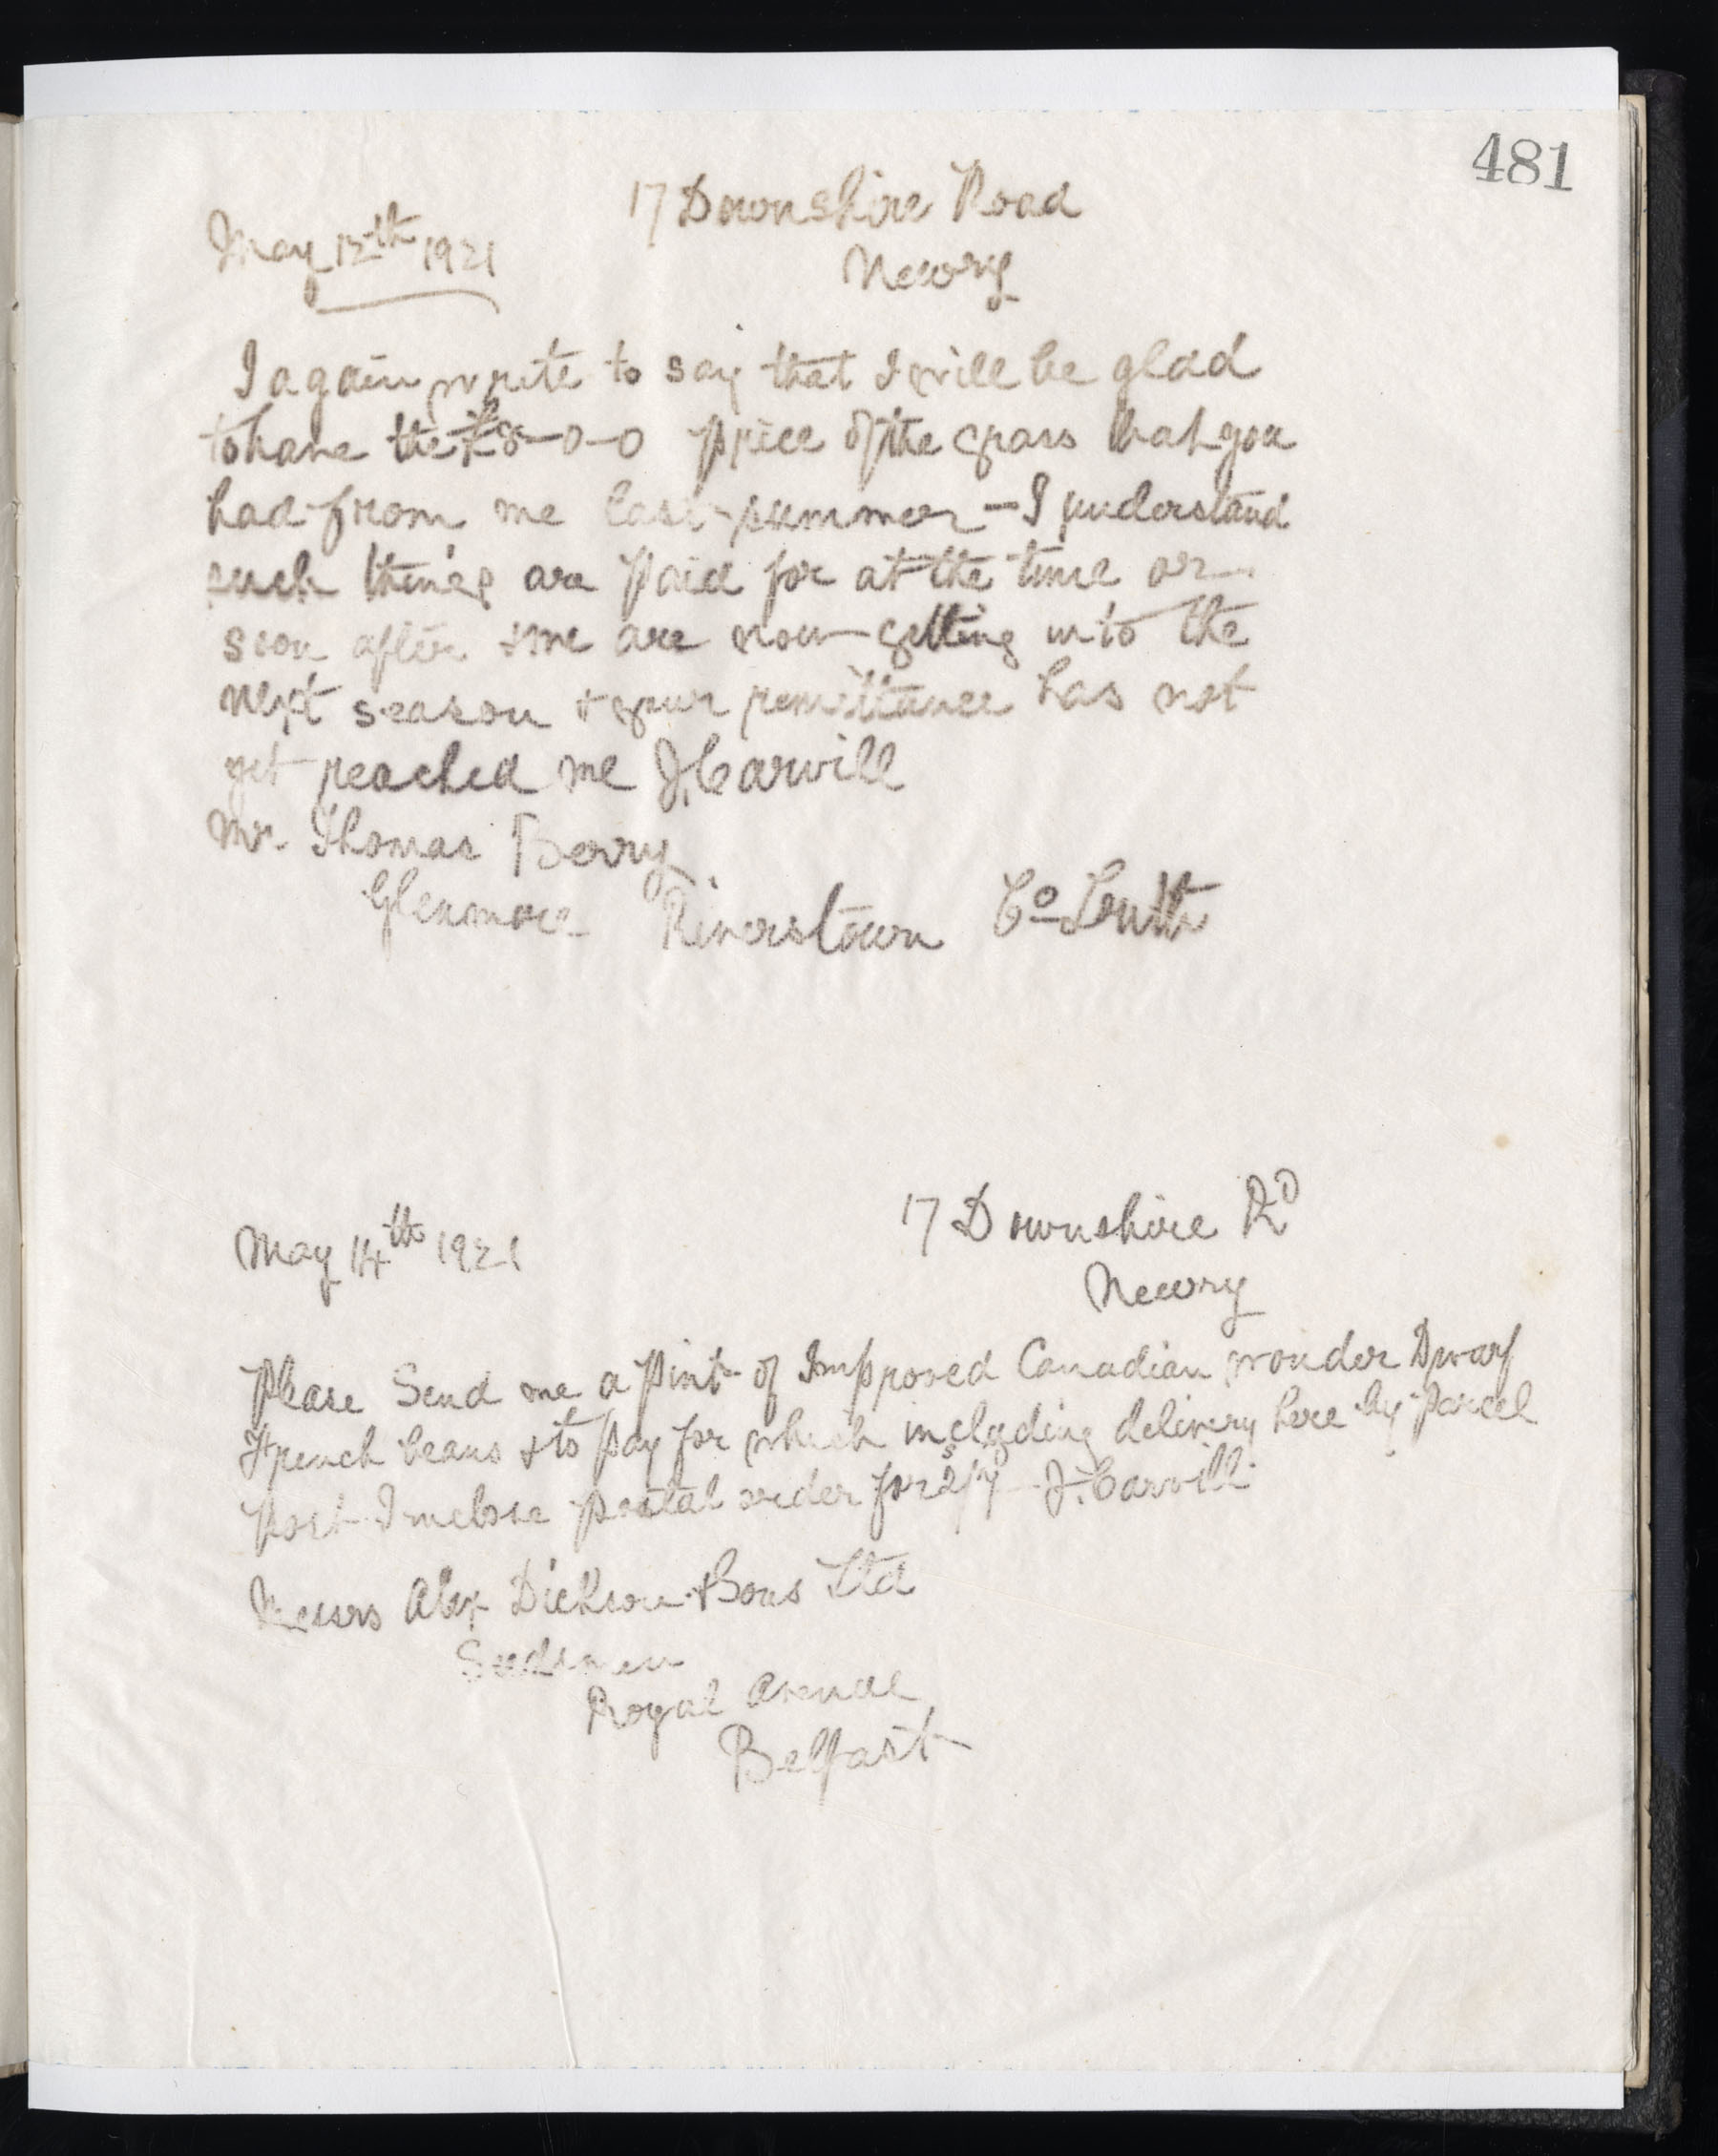 481
17 Downshire Road
May 12th 1921
Newry
I again write to say that I will be glad
to have the £8-0-0 price of the grass that you
had from me last summer - I understand
such things are paid for at the time or
soon after & we are now getting into the
next season & your remittance has not
yet reached me J. Carvill
Mr. Thomas Berry
Glenmore Riverstown Co Louth
17 Downshire Rd
May 14th 1921
Newry
Please Send me a pint of Improved Canadian wonder Dwarf
French beans & to pay for which including delivery here by parcel
post I inclose postal order for 2s/7d - J. Carvill
Messrs Alex Dickson & Sons Ltd
Seedsmen
Royal Avenue
Belfast